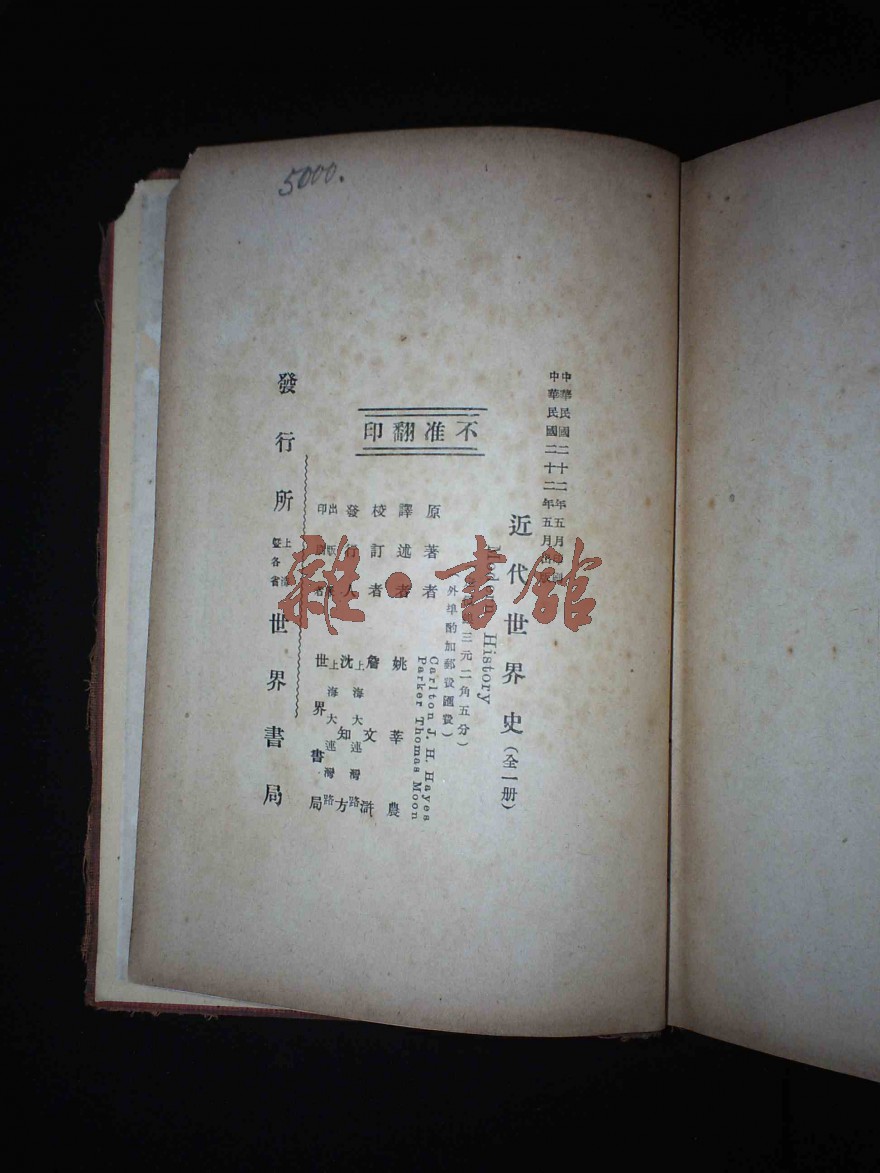 5000.
中華民國二十二年五月印刷
中華民國二十二年五月出版
近代世界史（全一册）
Modern History
三元二角五分）
（外埠酌加郵費匯費）
不准翻印
原著者 Carlton J. H. Hayes
Parker Thomas Moon
譯述者 姚莘農
校訂者 詹文滸
發行人 沈知方
上海大連灣路
出版印刷者 世界書局
上海大連灣路
發行所 上海暨各省 世界書局
雜·書館